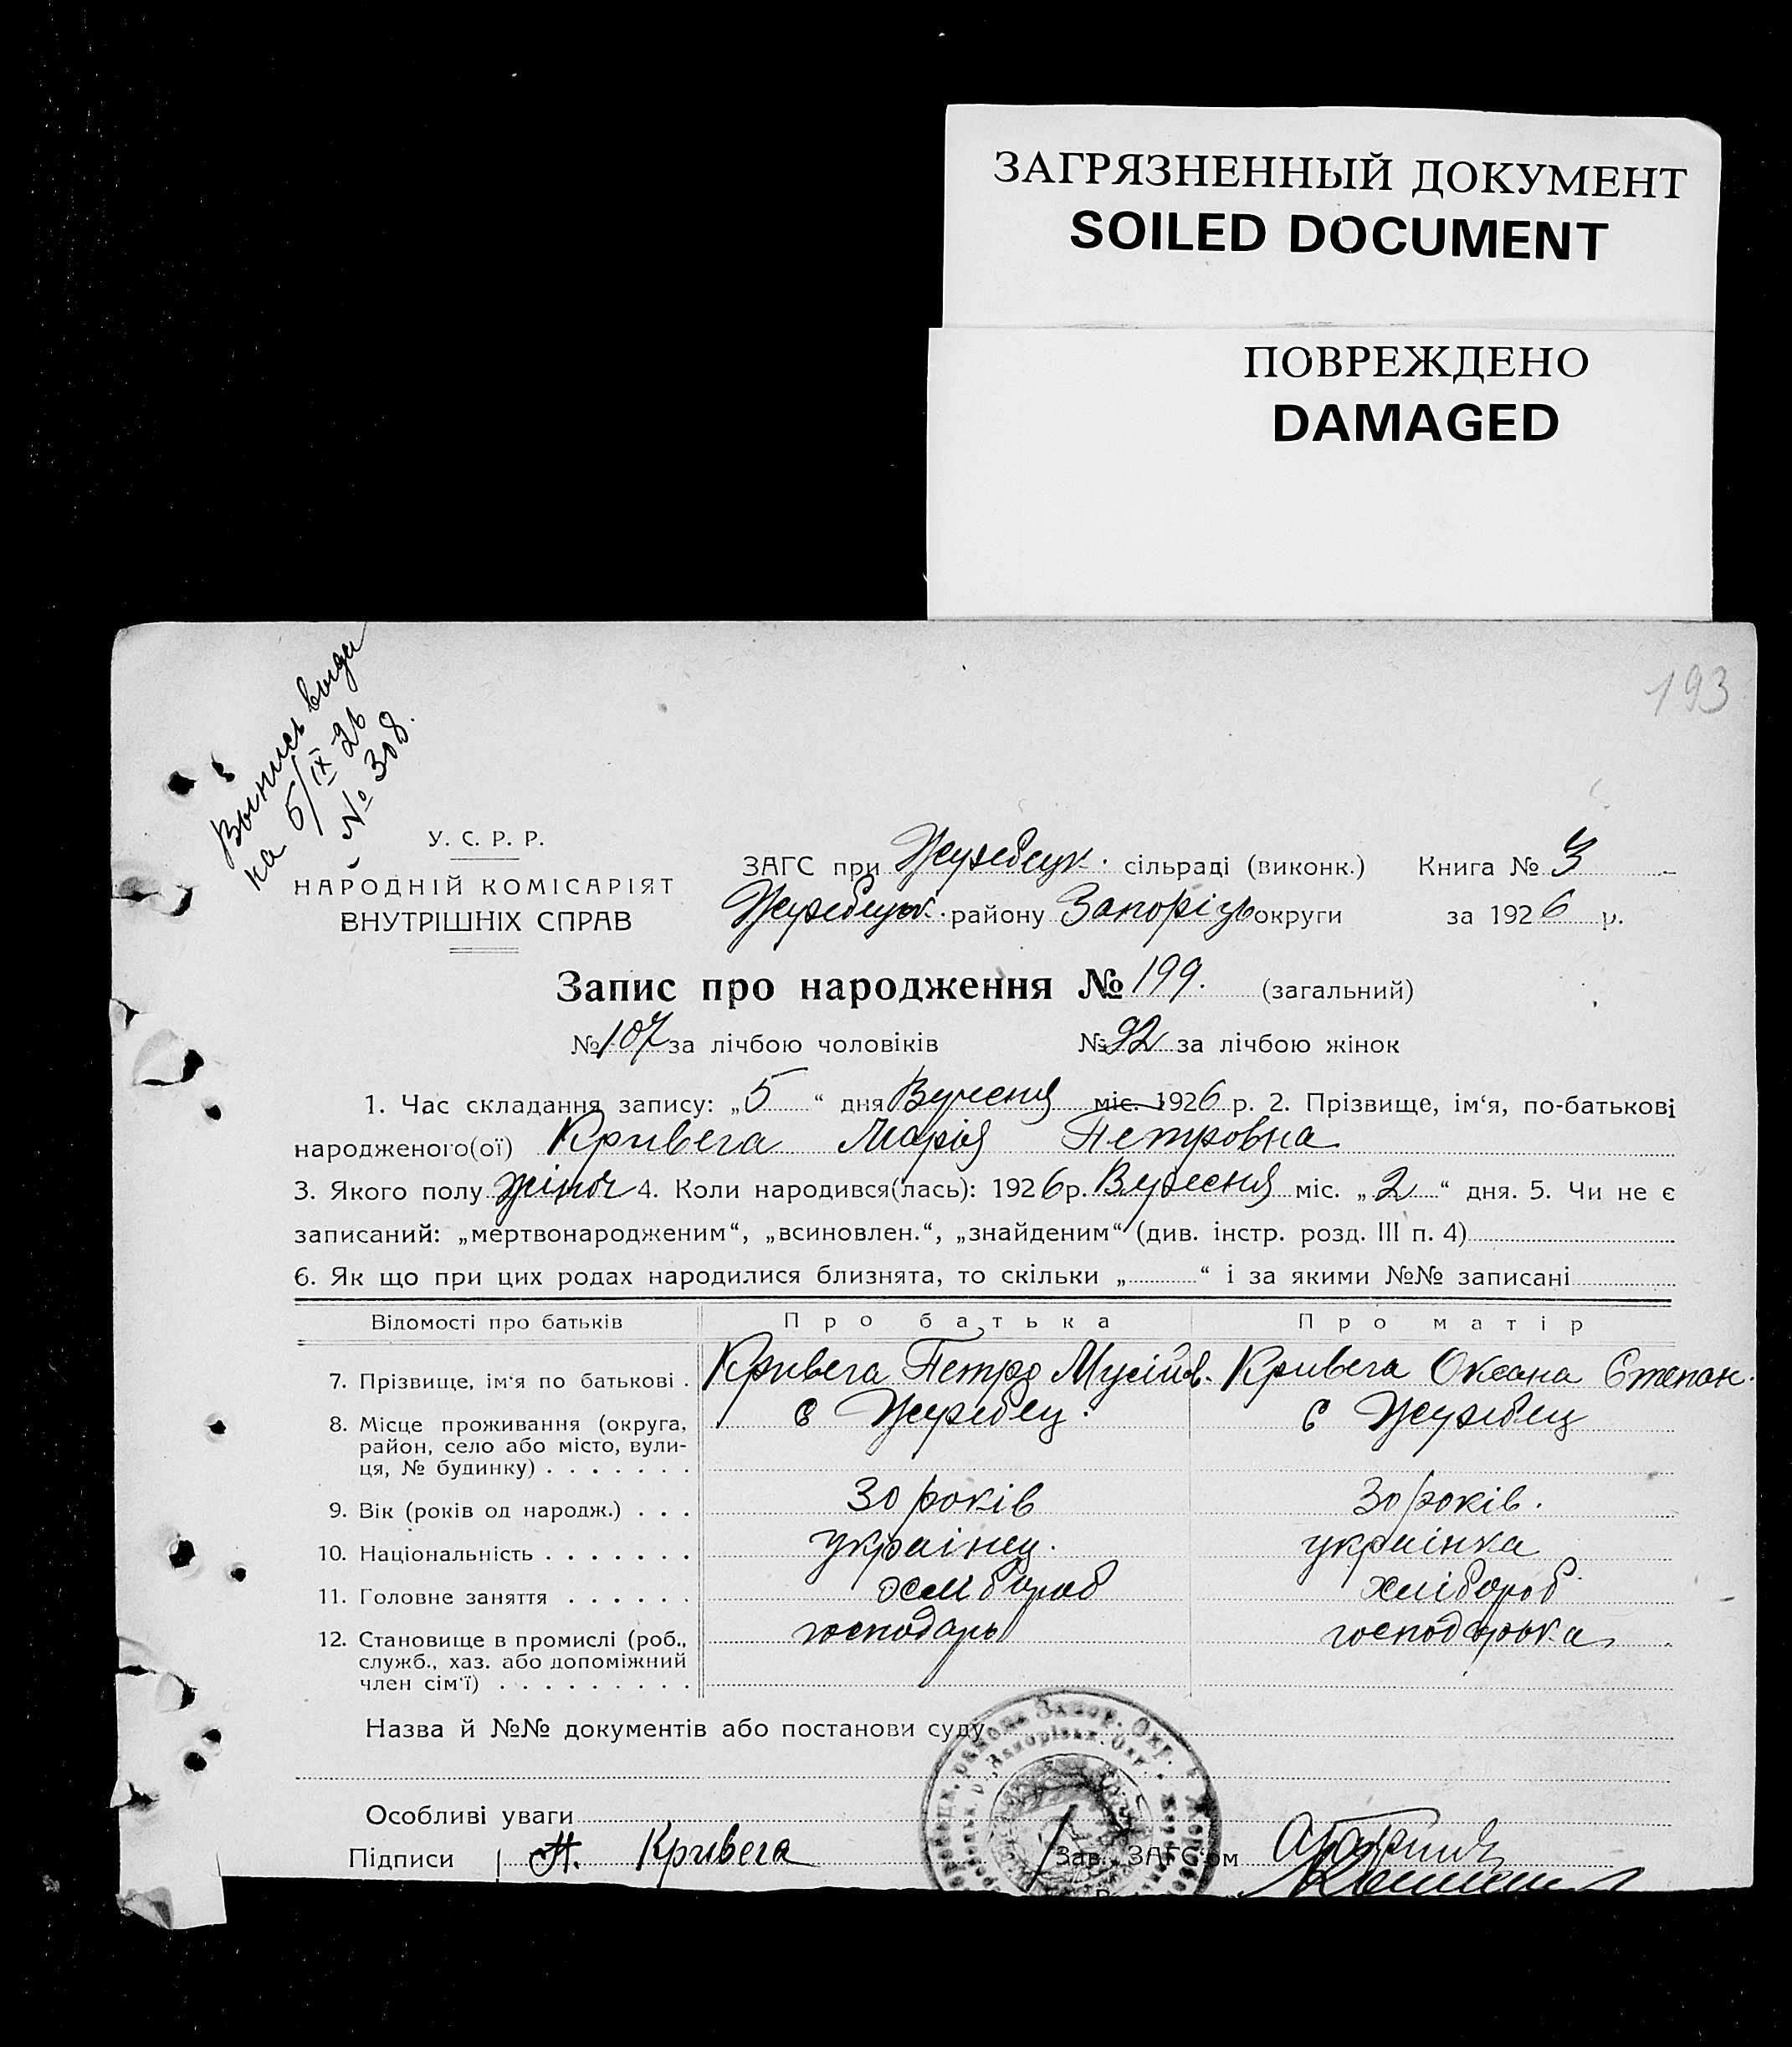 ЗАГРЯЗНЕННЫЙ ДОКУМЕНТ
SOILED DOCUMENT
ПОВРЕЖДЕНО
DAMAGED
193
Выпись выда
на 5/IX-26
№ 308.
У. С. Р. Р.
НАРОДНІЙ КОМІСАРІЯТ
ВНУТРІШНІХ СПРАВ
ЗАГС при Жеребецк. сільраді (виконк.) Книга № 3
Жеребецьк. району Запорізь округи за 1926 р.
Запис про народження № 199. (загальний)
№ 107 за лічбою чоловіків № 92 за лічбою жінок
1. Час складання запису: „5“ дня Вересня міс. 1926 р. 2. Прізвище, ім‘я, по-батькові
народженого(ої) Кривега Марія Петровна
3. Якого полу жіноч 4. Коли народився(лась): 1926 р. Вересня міс. „2“ дня. 5. Чи не є
записаний: „мертвонародженим“, „всиновлен.“, „знайденим“ (див. інстр. розд. III п. 4)
6. Як що при цих родах народилися близнята, то скільки „ “ і за якими №№ записані
Відомості про батьків Про батька Про матір
7. Прізвище, ім‘я по батькові . Кривега Петро Мусійов. Кривега Оксана Степан.
8. Місце проживання (округа, с Жеребец. с Жеребец
район, село або місто, вули-
ця, № будинку) . . . . . . .
9. Вік (років од народж.) . . . 30 років 30 років.
10. Національність . . . . . . . українец. українка
11. Головне заняття . . . . . . хлібороб хлібороб
12. Становище в промислі (роб., господарь господарька
служб., хаз. або допоміжний
член сім‘ї) . . . . . . . . .
Назва й №№ документів або постанови суду
Особливі уваги
Підписи П. Кривега Зав. ЗАГС‘ом